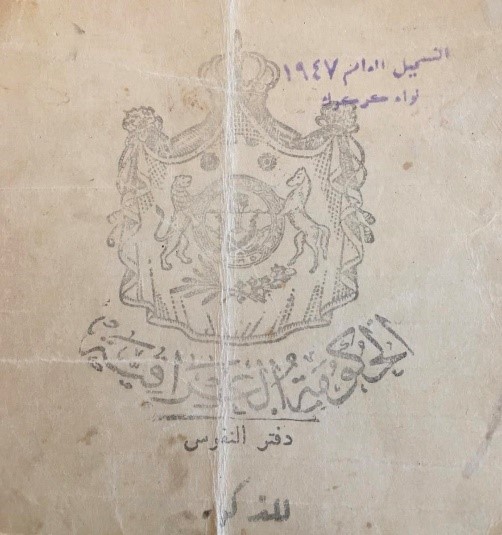 التسجيل العام ١٩٤٧
لواء كركوك
الحكومة العراقية
دفتر النفوس
للذكور